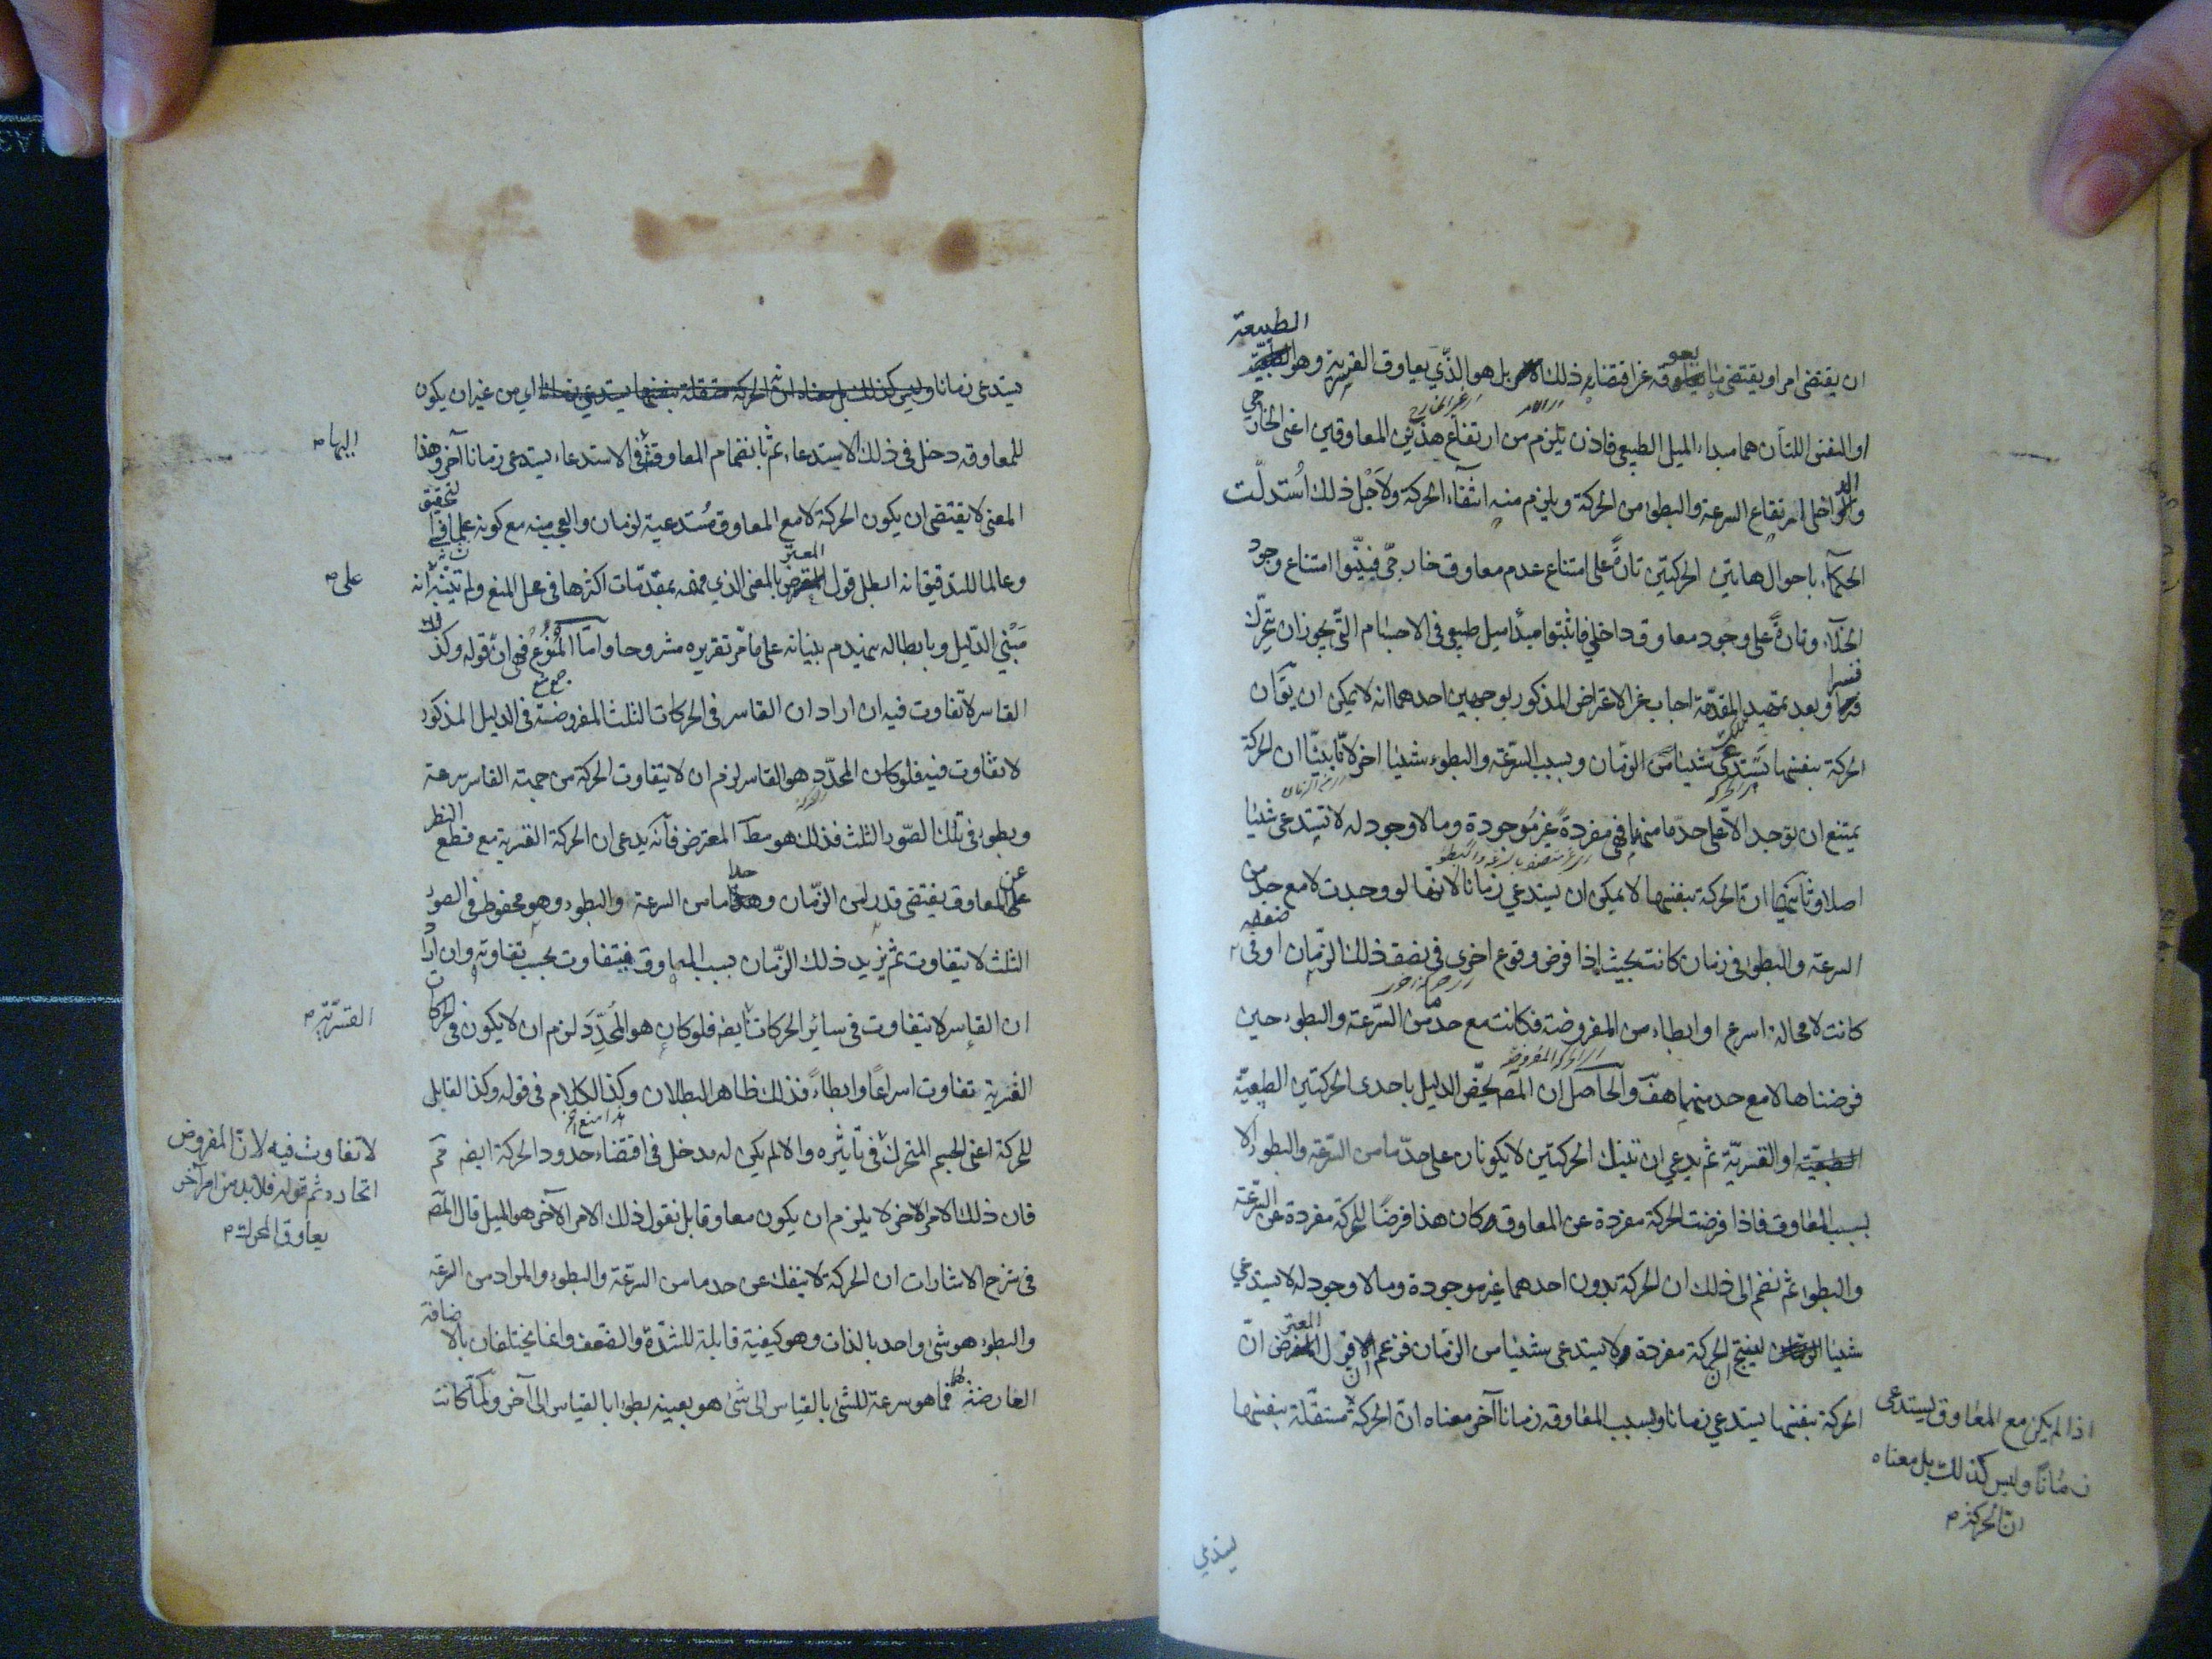 الطبيعة
ان يقتضى امرا ويقتضى ما يعوقه عن اقتضايه ذلك الامر بل هو الذّي يعاوق القسرية وهو الطبيعة
او النفس اللتان هما مبداء الميل الطبيعى فاذن يلزم من ارتفاع هذين المعاوقين اعنى الخارجي
والدّاخلى ارتفاع السرعة والبطوء من الحركة ويلزم منه انتفاء الحركة ولاَجْل ذلك اُستدلّت
الحكماء باحوال هاتين الحركتين تارةً على امتناع عدم معاوق خارجىّ فبيّنوا امتناع وجود
الخلاء وتارةً على وجود معاوق داخلي فاثبتوا مبدأ ميل طبيعى فى الاجسام التّي يجوز ان يتحرّك
قسرا وبعد تمهيد المقدّمة اجاب عن الاعتراض المذكور بوجهين احدهما انه لا يمكن ان يقال ان
الحركة بنفسها تستدعى شيئا من الزّمان وبسبب السّرعة والبطوء شيئا اخر لانّا بيّنّا ان الحركة
يمتنع ان توجد الاّ على حدّ ما منهما فهى مفردةً غير موجودة وما لا وجود له لا يستدعى شيئا
اصلا وثانيهما انّ الحركة بنفسها لا يمكن ان يستدعي زمانا لانّها لو وجدت لا مع حد من
السرعة والبطوء فى زمان كانت بحيث إذا فرض وقوع اخرى فى نصف ذلك الزّمان او فى ضعفه
كانت لا محالة اسرع او ابطاء من المفروضة فكانت مع حد ما من السّرعة والبطوء حين
فرضناها لا مع حد منهما هف والحاصل ان المص يخصّ الدليل باحدى الحركتين الطبيعيّة
او القسريّة ثم يدعي ان تينك الحركتين لا يكونان على حدّ ما من السّرعة والبطوء الا
بسبب المعاوق فاذا فرضت الحركة مفردة عن المعاوق كان هذا فرضًا للحركة مفردة عن السّرعة
والبطوء ثم نضم الى ذلك ان الحركة بدون احدهما غير موجودة وما لا وجود له لا يستدعي
شيئا لينتج ان الحركة مفردة لا يستدعى شيئا من الزمان فزعم ان قول المعترض انّ
الحركة بنفسها يستدعي زمانا وبسبب المعاوقه زمانا آخر معناه انّ الحركة مستقلة بنفسها
اذا لم يكن مع المعاوق يستدعى
زمانًا وليس كذلك بل معناه
ان الحركة م
يستدعي
يستدعى زمانا وليس كذلك بل معناه ان الحركة مستقلة بنفسها يستدعي زمانا اي من غير ان يكون
للمعاوقه دخل فى ذلك الاستدعاء ثم بانضمام المعاوقة فى الاستدعاء يستدعى زمانا آخر وهذا
اليها م
المعنى لا يقتضى ان يكون الحركة لا مع المعاوق مُستدعية لزمان والعجب منه مع كونه علما فى التحقيق
وعالما للتدقيق انه ابطل قول المعترض بالمعنى الذي فهمه بمقدّمات اكثرها فى محل المنع ولم يتنبه انه
على م
مَبْني الدّليل وبابطاله ينهدم بنيانه على ما مّر تقريره مشروحا وامّا المُنُوعُ فهى انّ قوله وكذا
القاسر لا تفاوت فيه ان اراد ان القاسر فى الحركات الثلث المفروضة فى الدليل المذكور
لا تفاوت فيه فلو كان المحدّد هو القاسر لزم ان لا يتفاوت الحركة من جهة القاسر سرعة
وبطوء فى تلك الصّور الثلث فذلك هو مط المعترض فأنه يدعى ان الحركة القسرية مع قطع النظر
عن المعاوق يقتضى قدرا من الزّمان وحدا ما من السرعة والبطوء وهو محفوظ فى الصور
الثلث لا يتفاوت ثم يزيد ذلك الزّمان بسبب المعاوق فيتفاوت بحسب تفاوته وان اراد
ان القاسر لا يتفاوت فى سائر الحركات ايضا فلو كان هو المُحَدِّدَ لزم ان لا يكون فى الحركات
القسريّة م
القسرية تفاوت اسراعًا وابطاءً فذلك ظاهر البطلان وكذا الكلام فى قوله وكذا القابل
للحركة اعنى الجسم المتحرك فى تأثيره والا لم يكن له مدخل فى اقتضاء حدود الحركة ايضا ثم
لا تفاوت فيه لانّ المفروض
اتحاده ثم قوله فلا بد من امر آخر
يعاوق المحرك م
فان ذلك الامر الاخر لا يلزم ان يكون معاوقا بل نقول ذلك الامر الآخر هو الميل قال المص
فى شرح الاشارات ان الحركة لا ينفك عن حد ما من السرّعة والبطوء والمراد من السرعة
والبطوء هو شئ واحد بالذات وهو كيفية قابلة للشدّة والضّعف وانما يختلفان بالاضافة
العارضة لهما فما هو سرعة للشئ بالقياس الى شئ هو بعينه بطوء بالقياس الى آخر ولمّا كانت